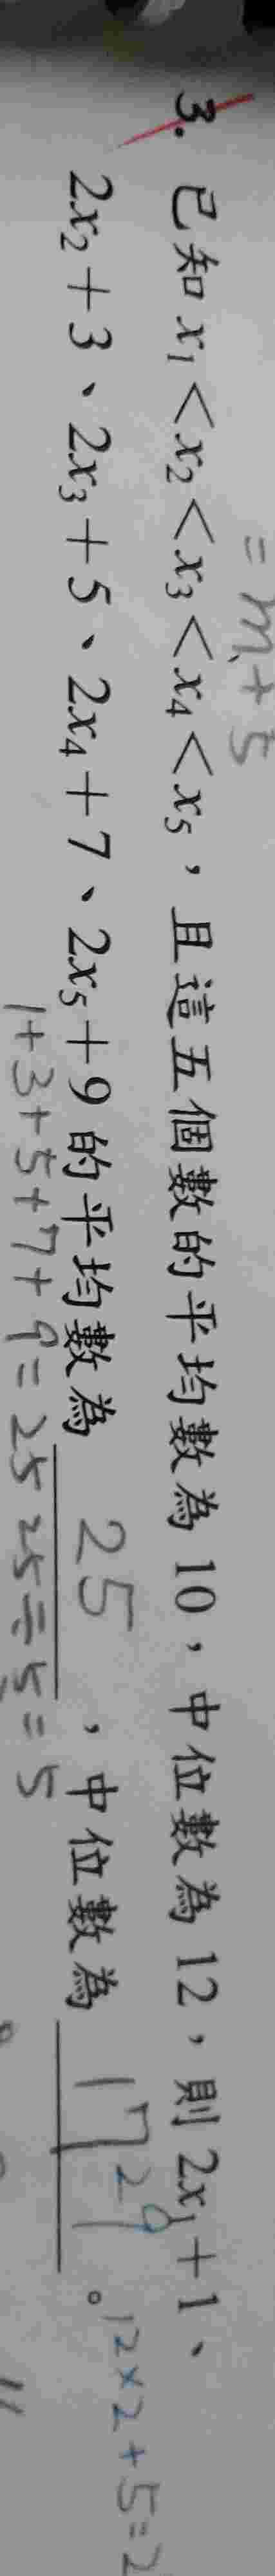 =m+5
3. 已知 x₁<x₂<x₃<x₄<x₅，且這五個數的平均數為 10，中位數為 12，則 2x₁+1、
2x₂+3、2x₃+5、2x₄+7、2x₅+9 的平均數為 25，中位數為 17 29。12×2+5=2
1+3+5+7+9=25 25÷5=5